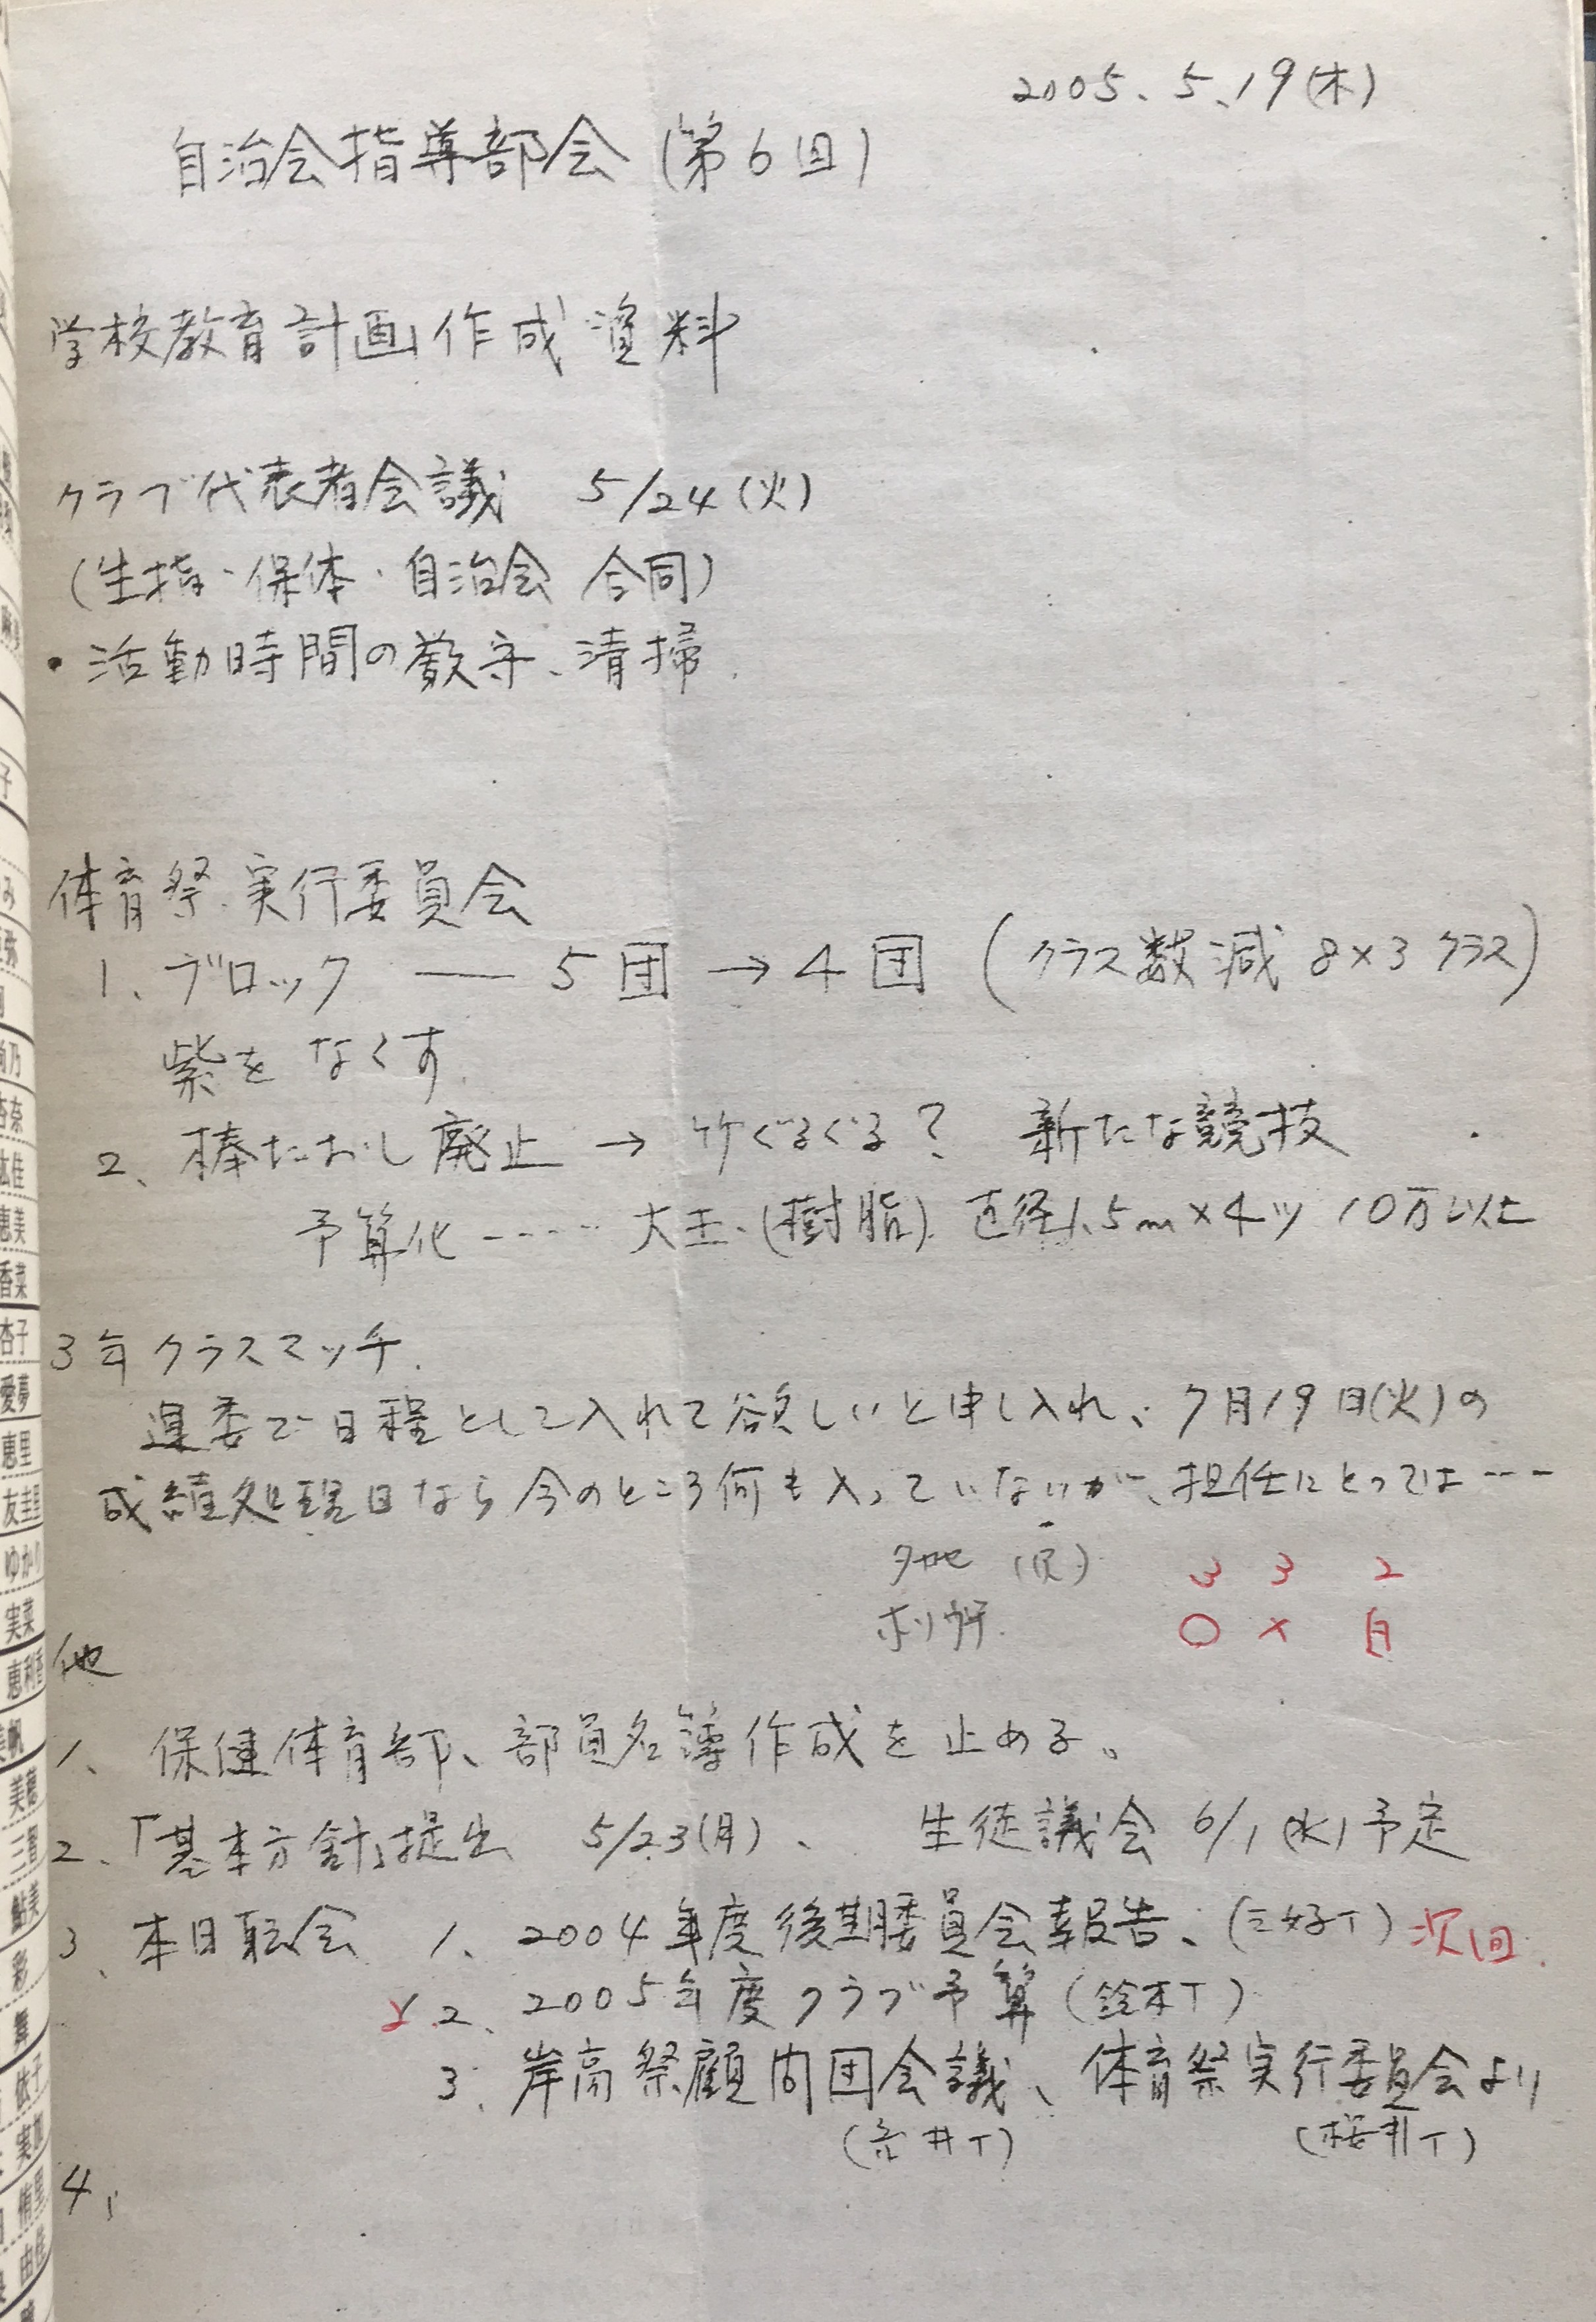 2005、5、19(木)
自治会指導部会(第6回)
学校教育計画作成資料
クラブ代表者会議 5/24(火)
(生指・保体・自治会 合同)
・活動時間の厳守、清掃.
体育祭実行委員会
1、ブロック ── 5団 → 4団 (クラス数減 8×3クラス)
紫をなくす.
2、棒たおし廃止 → 竹ぐるぐる? 新たな競技
予算化‥‥ 大玉(樹脂) 直径1.5m×4ツ 10万以上
3年クラスマッチ.
運委で日程として入れて欲しいと申し入れ、7月19日(火)の
成績処理日なら今のところ何も入っていないが、担任にとっては‥‥
3 3 2
○ × 白
他
1、保健体育部、部員名簿作成を止める。
2、「基本方針」提出 5/23(月)、 生徒議会 6/1(水)予定
3、本日職会 1、2004年度後期委員会報告、(三好T) 次回.
2、2005年度クラブ予算(鈴木T)
3、岸高祭顧問団会議、体育祭実行委員会より
(桜井T)
4、
弥
杏奈
恵美
香菜
杏子
愛夢
恵里
友圭里
ゆかり
実菜
恵利香
帆
鮎美
彩
舞
依子
実加
侑里
由佳